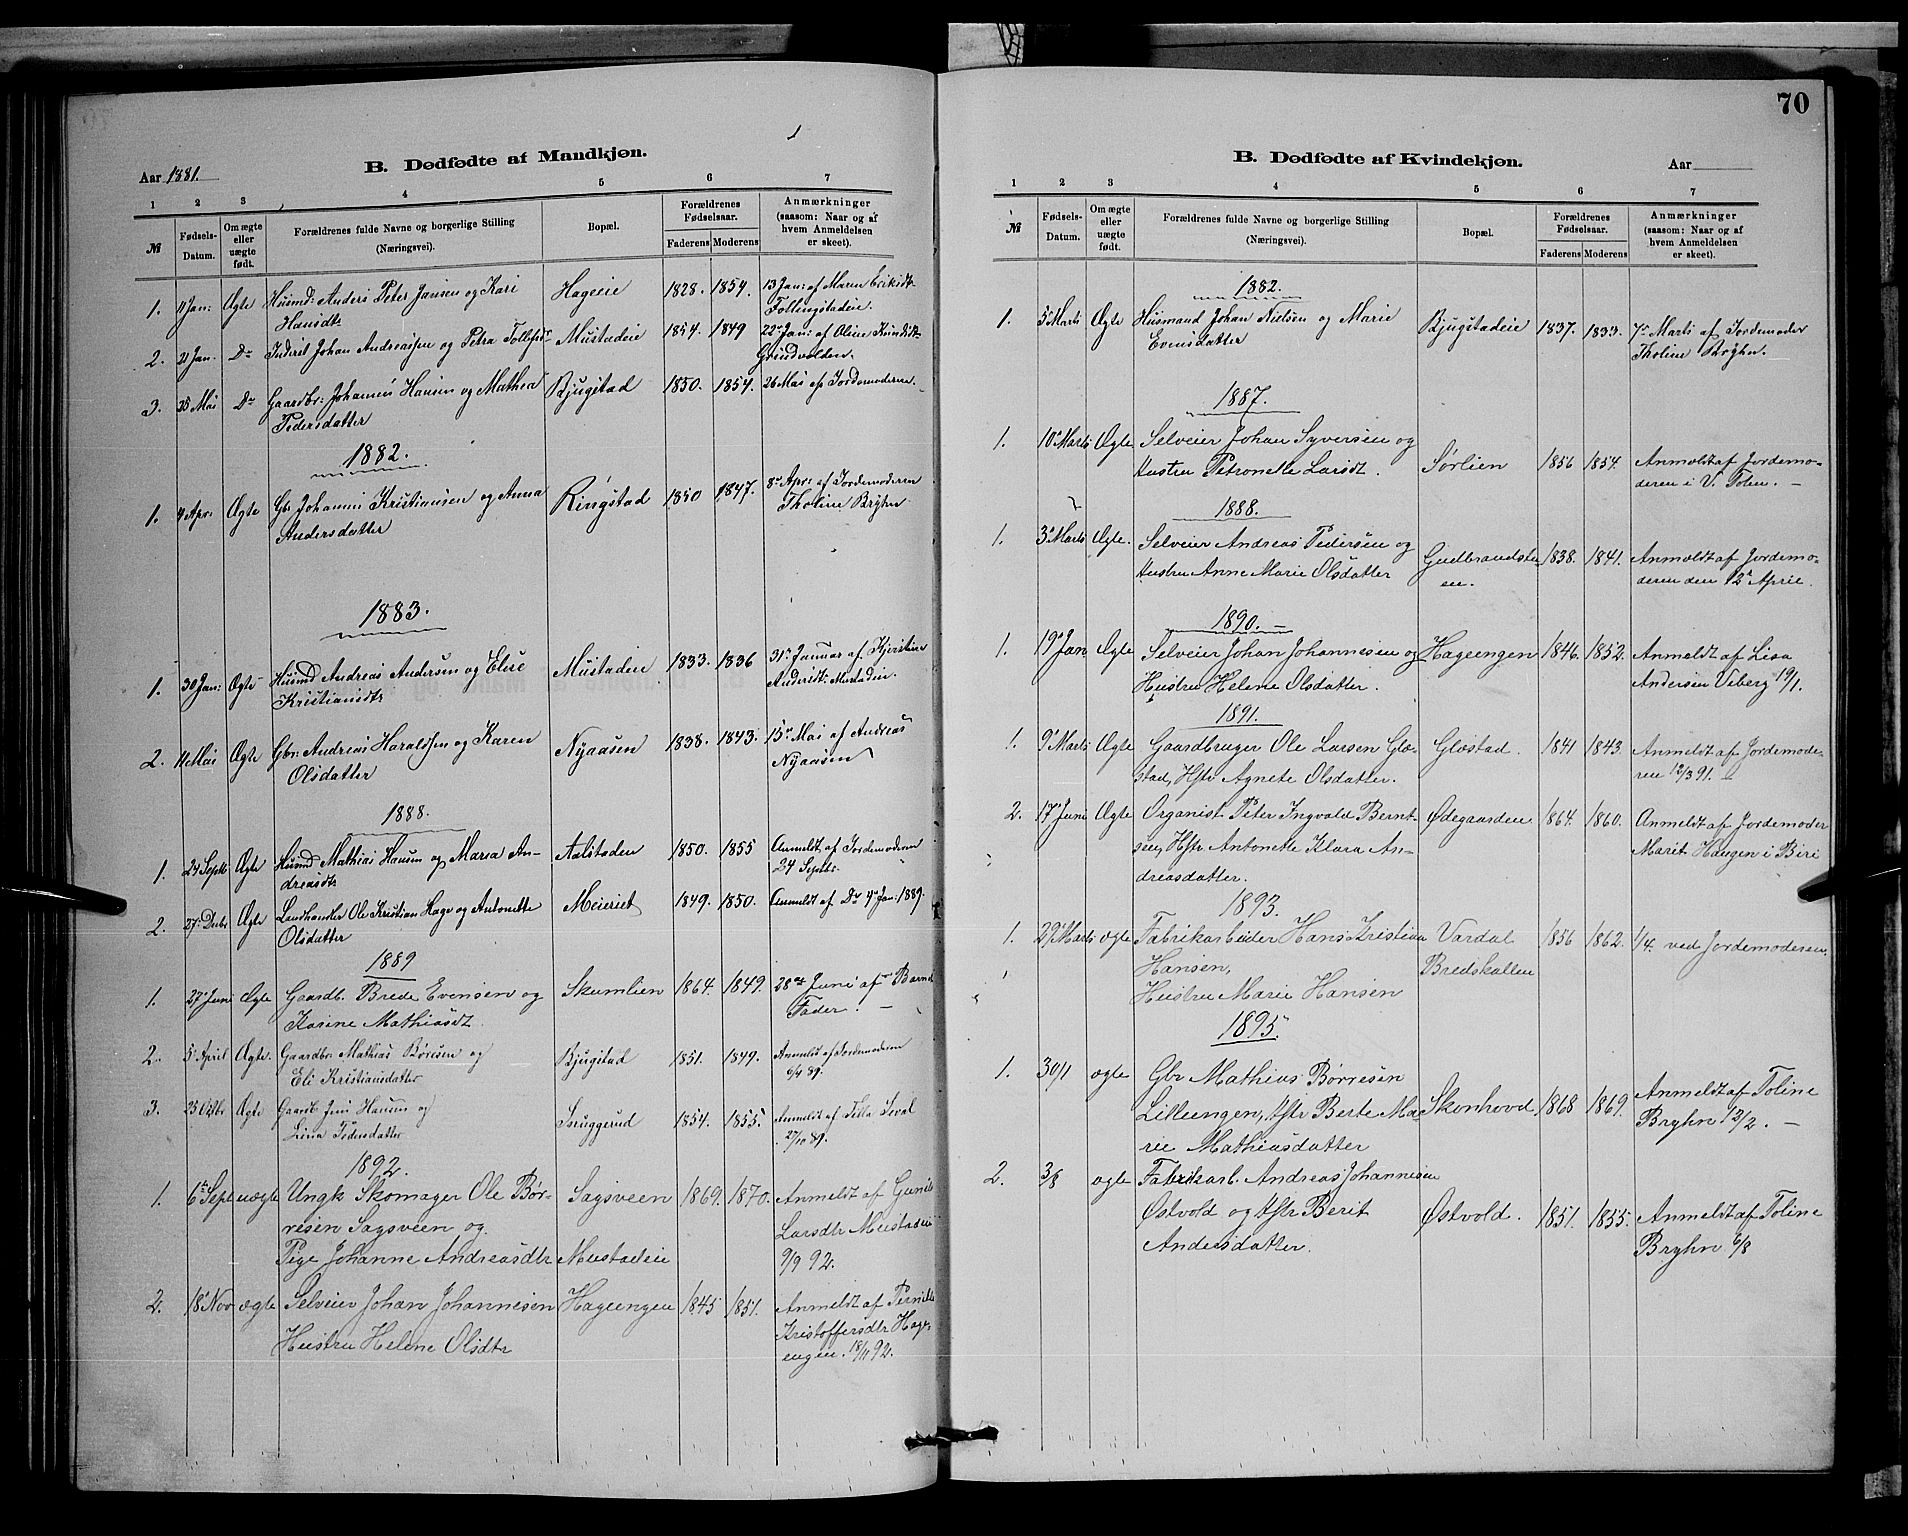 B. Dødfødte af Mandkjøn.
Aar 1881.
1 2 3 4 5 6 7
№ Fødsels-Datum. Om ægte eller uægte født. Forældrenes fulde Navne og borgerlige Stilling (Næringsvei). Bopæl. Forældrenes Fødselsaar. Faderens Moderens Anmærkninger (saasom: Naar og af hvem Anmeldelsen er skeet).
1. 11 Jan: Ægte Husmd: Anders Peter Jansen og Kari Hageeie 1828. 1854. 13 Jan: af Maren Eriksdt.
Hansdtr Follingstadeie.
2. 21 Jan. Do Inderst Johan Andreassen og Petra Tollefsdtr Mustadeie 1854. 1849 22de Jan: af Oline Knudsdt.
Grindvolden.
3. 25 Mai Do Gaardbr: Johannes Hansen og Mathea Bjugstad 1850. 1854. 26 Mai af Jordemoderen.
Pedersdatter
1882.
1. 4 Apr: Ægte Gbr Johannes Kristiansen og Anna Ringstad 1850 1847. 8de Apr: af Jordemoderen
Andersdatter Tholine Bryhn
1883.
1. 30 Jan: Ægte Husmd Andreas Andersen og Elise Mustaden 1833. 1836 31te Januar af Kjerstine
Kristiansdtr Andersdt: Mustaden.
2. 11 Mai Ægte Gbr: Andreas Haraldsen og Karen Nyaasen 1838. 1843. 15de Mai af Andreas
Olsdatter Nyaasen
1888.
1. 24 Septbr Ægte Husmd Mathias Hansen og Maria An- Aalstaden 1850. 1855 Anmeldt af Jordemoderen
dreasdtr 24 Septbr.
2. 27. Debr Ægte Landhandler Ole Kristian Hage og Antonette Meieriet 1849. 1850. Anmeldt af Do 4de Jan: 1889.
Olsdatter
1889
1. 27de Juni Ægte Gaardb. Brede Evensen og Skumlien 1864. 1849. 28de Juni af Barnets
Karine Mathiasdt. Fader. —
2. 5te April Ægte. Gaardbr: Mathias Børesen og Bjugstad 1851. 1849. Anmeldt af Jordemoderen
Eli Kristiansdatter 6/4 89.
3. 25 Octbr Ægte Gaardb Jens Hansen og Snuggerud 1854. 1855. Anmeldt af
Lina Pedersdatter 27/10 89.
1892.
1. 6te Sept uægte Ungk Skomager Ole Bør- Sagsveen 1869. 1870. Anmeldt af Gunil
resen Sagsveen og Larsdtr Mustadeie
Pige Johanne Andreasdtr Mustadeie 9/9 92.
2. 18' Nov ægte Selveier Johan Johannesen Hageengen 1845 1851. Anmeldt af Pernille
Hustru Helene Olsdtr Kristoffersdtr Hage-
engen. 18/11 92.
70
B. Dødfødte af Kvindekjøn.
Aar
1 2 3 4 5 6 7
№ Fødsels-Datum. Om ægte eller uægte født. Forældrenes fulde Navne og borgerlige Stilling (Næringsvei). Bopæl. Forældrenes Fødselsaar. Faderens Moderens Anmærkninger (saasom: Naar og af hvem Anmeldelsen er skeet).
1882.
1. 5 Marts Ægte Husmand Johan Nielsen og Marie Bjugstadeie 1837. 1833. 7de Marts af Jordemoder
Evensdatter Tholine Bryhn.
1887.
1. 10de Marts Ægte Selveier Johan Syversen og
Hustru Petronelle Larsdt. Sørlien 1856 1854. Anmeldt af Jordemo-
deren i V. Toten. —
1888.
1. 3de Marts Ægte. Selveier Andreas Pedersen og
Hustru Anne Marie Olsdatter Gudbrandstu- 1838. 1841. Anmeldt af Jordemo-
en. deren den 12te April.
1890. —
1. 19de Jan. Ægte Selveier Johan Johannesen og Hageengen 1846. 1852. Anmeldt af Lisa
Hustru Helene Olsdatter. Andersen Viberg 19/1.
1891.
1. 9de Marts Ægte Gaardbruger Ole Larsen Glæ- Glæstad. 1841 1843. Anmeldt af Jordemode-
stad, Hstr Agnete Olsdatter. ren 12/3 91. —
2. 17' Juni Ægte Organist Peter Ingvald Bernt- Ødegaarden 1864. 1860. Anmeldt af Jordemoder
sen, Hstr Antonette Klara An- Marit Haugen i Biri
dreasdatter.
1893.
1. 29' Marts ægte Fabrikarbeider Hans Kristian Vardal 1856 1862. 1/4. ved Jordemoderen.
Hansen, Bredskallen
Hustru Marie Hansen
1895.
1. 30/1 ægte Gbr Mathias Børresen
Lilleengen, Hstr Berte Ma- Skonhovd 1868 1869. Anmeldt af Toline
rie Mathiasdatter Bryhn 12/2. —
2. 3/8 ægte Fabrikarb. Andreas Johannesen
Østvold og Hstr Berit Østvold. 1851. 1855. Anmeldt af Toline
Andersdatter. Bryhn 6/8